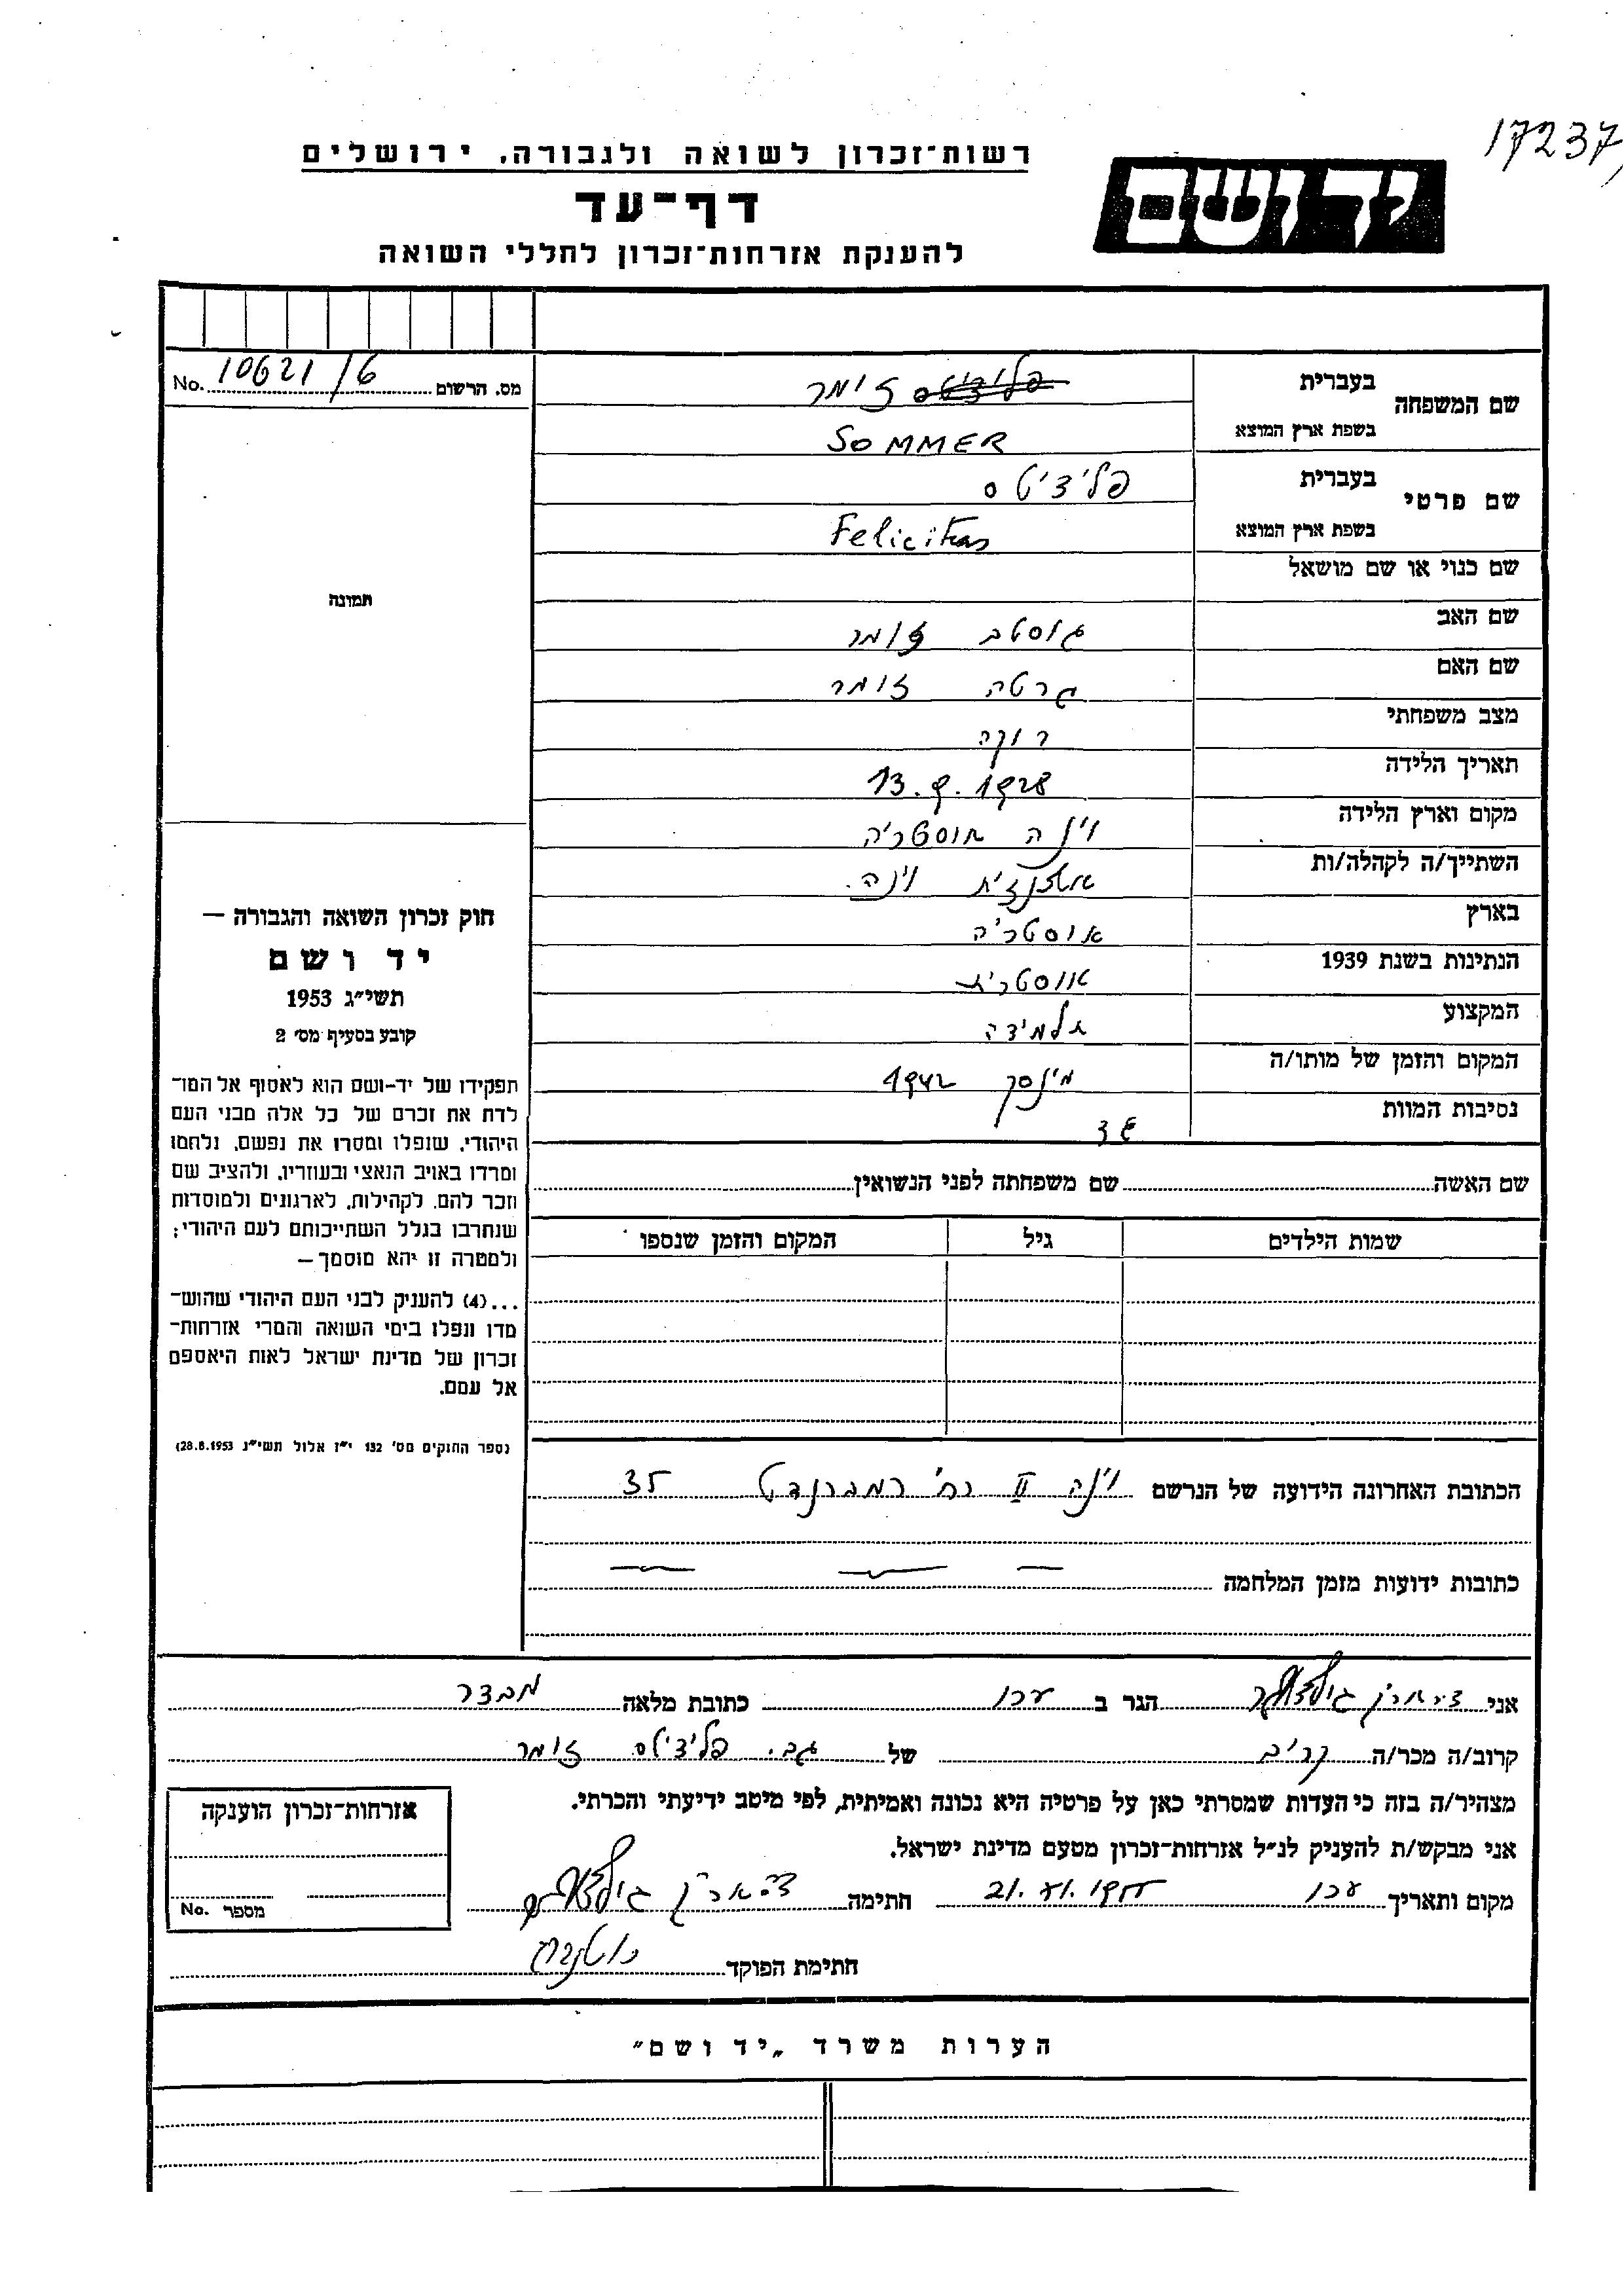 17237
רשות-זכרון לשואה ולגבורה, ירושלים
יד ושם
דף-עד
להענקת אזרחות-זכרון לחללי השואה
מס. הרשום No. 10621/6
שם המשפחה
בעברית פליציטס זומר
בשפת ארץ המוצא SOMMER
שם פרטי
בעברית פליציטס
בשפת ארץ המוצא Felicitas
שם כנוי או שם מושאל
תמונה
שם האב גוסטב זומר
שם האם גרטה זומר
מצב משפחתי רווקה
תאריך הלידה 13.9.1928
מקום וארץ הלידה וינה אוסטריה
השתייך/ה לקהלה/ות אשכנזית וינה
בארץ אוסטריה
הנתינות בשנת 1939 אוסטרית
המקצוע תלמידה
המקום והזמן של מותו/ה מינסק 1942
נסיבות המוות
חוק זכרון השואה והגבורה —
יד ושם
תשי״ג 1953
קובע בסעיף מס׳ 2
תפקידו של יד-ושם הוא לאסוף אל המו-
לדת את זכרם של כל אלה מבני העם
היהודי, שנפלו ומסרו את נפשם, נלחמו
ומרדו באויב הנאצי ובעוזריו, ולהציב שם
וזכר להם, לקהילות, לארגונים ולמוסדות
שנחרבו בגלל השתייכותם לעם היהודי;
ולמטרה זו יהא מוסמך—
...(4) להעניק לבני העם היהודי שהוש-
מדו ונפלו בימי השואה והמרי אזרחות-
זכרון של מדינת ישראל לאות היאספם
אל עמם.
(ספר החוקים מס׳ 132 י״ז אלול תשי״ג 28.8.1953)
שם האשה שם משפחתה לפני הנשואין
שמות הילדים גיל המקום והזמן שנספו
הכתובת האחרונה הידועה של הנרשם וינה II רח׳ רמברנדט 35
כתובות ידועות מזמן המלחמה — — —
אני הגר ב עכו כתובת מלאה מבצר
קרוב/ה מכר/ה קריב של גב. פליציטס זומר
מצהיר/ה בזה כי העדות שמסרתי כאן על פרטיה היא נכונה ואמיתית, לפי מיטב ידיעתי והכרתי.
אני מבקש/ת להעניק לנ״ל אזרחות-זכרון מטעם מדינת ישראל.
אזרחות-זכרון הוענקה
מספר No.
מקום ותאריך עכו חתימה
חתימת הפוקד
הערות משרד „יד ושם״